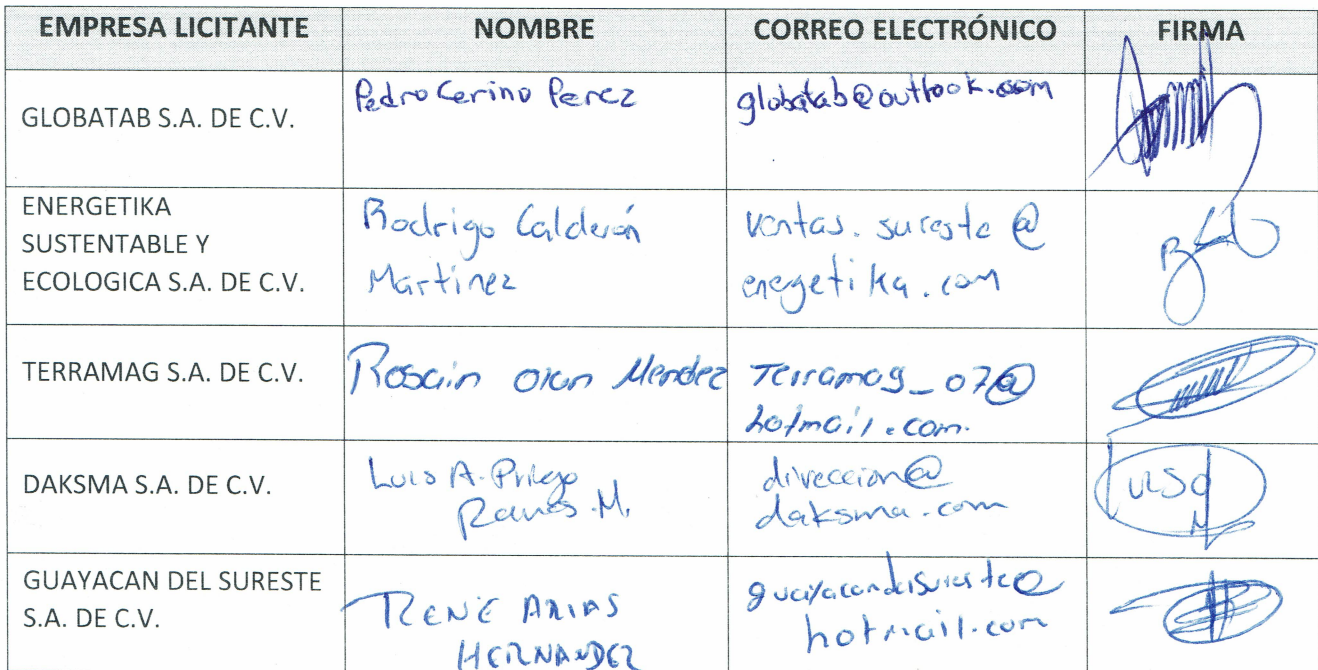 EMPRESA LICITANTE NOMBRE CORREO ELECTRÓNICO FIRMA
GLOBATAB S.A. DE C.V.
Pedro Cerino Perez
globatab@outlook.com
ENERGETIKA
SUSTENTABLE Y
ECOLOGICA S.A. DE C.V.
Rodrigo Calderón
Martínez
ventas.sureste@
energetika.com
TERRAMAG S.A. DE C.V.
Mendez
Terramag_07@
hotmail.com.
DAKSMA S.A. DE C.V.
Luis A. Priego
M.
direccion@
daksma.com
GUAYACAN DEL SURESTE
S.A. DE C.V.
RENE ARIAS
HERNANDEZ
guayacandelsureste@
hotmail.com